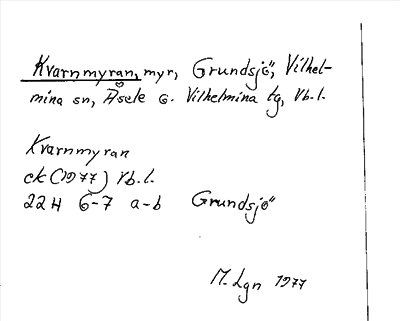 Kvarnmyran, myr, Grundsjö, Vilhel-
mina sn, Åsele o. Vilhelmina tg, Vb.l.
Kvarnmyran
ek (1977) Vb.l.
22H 6-7 a-b Grundsjö
M. Lgn 1977